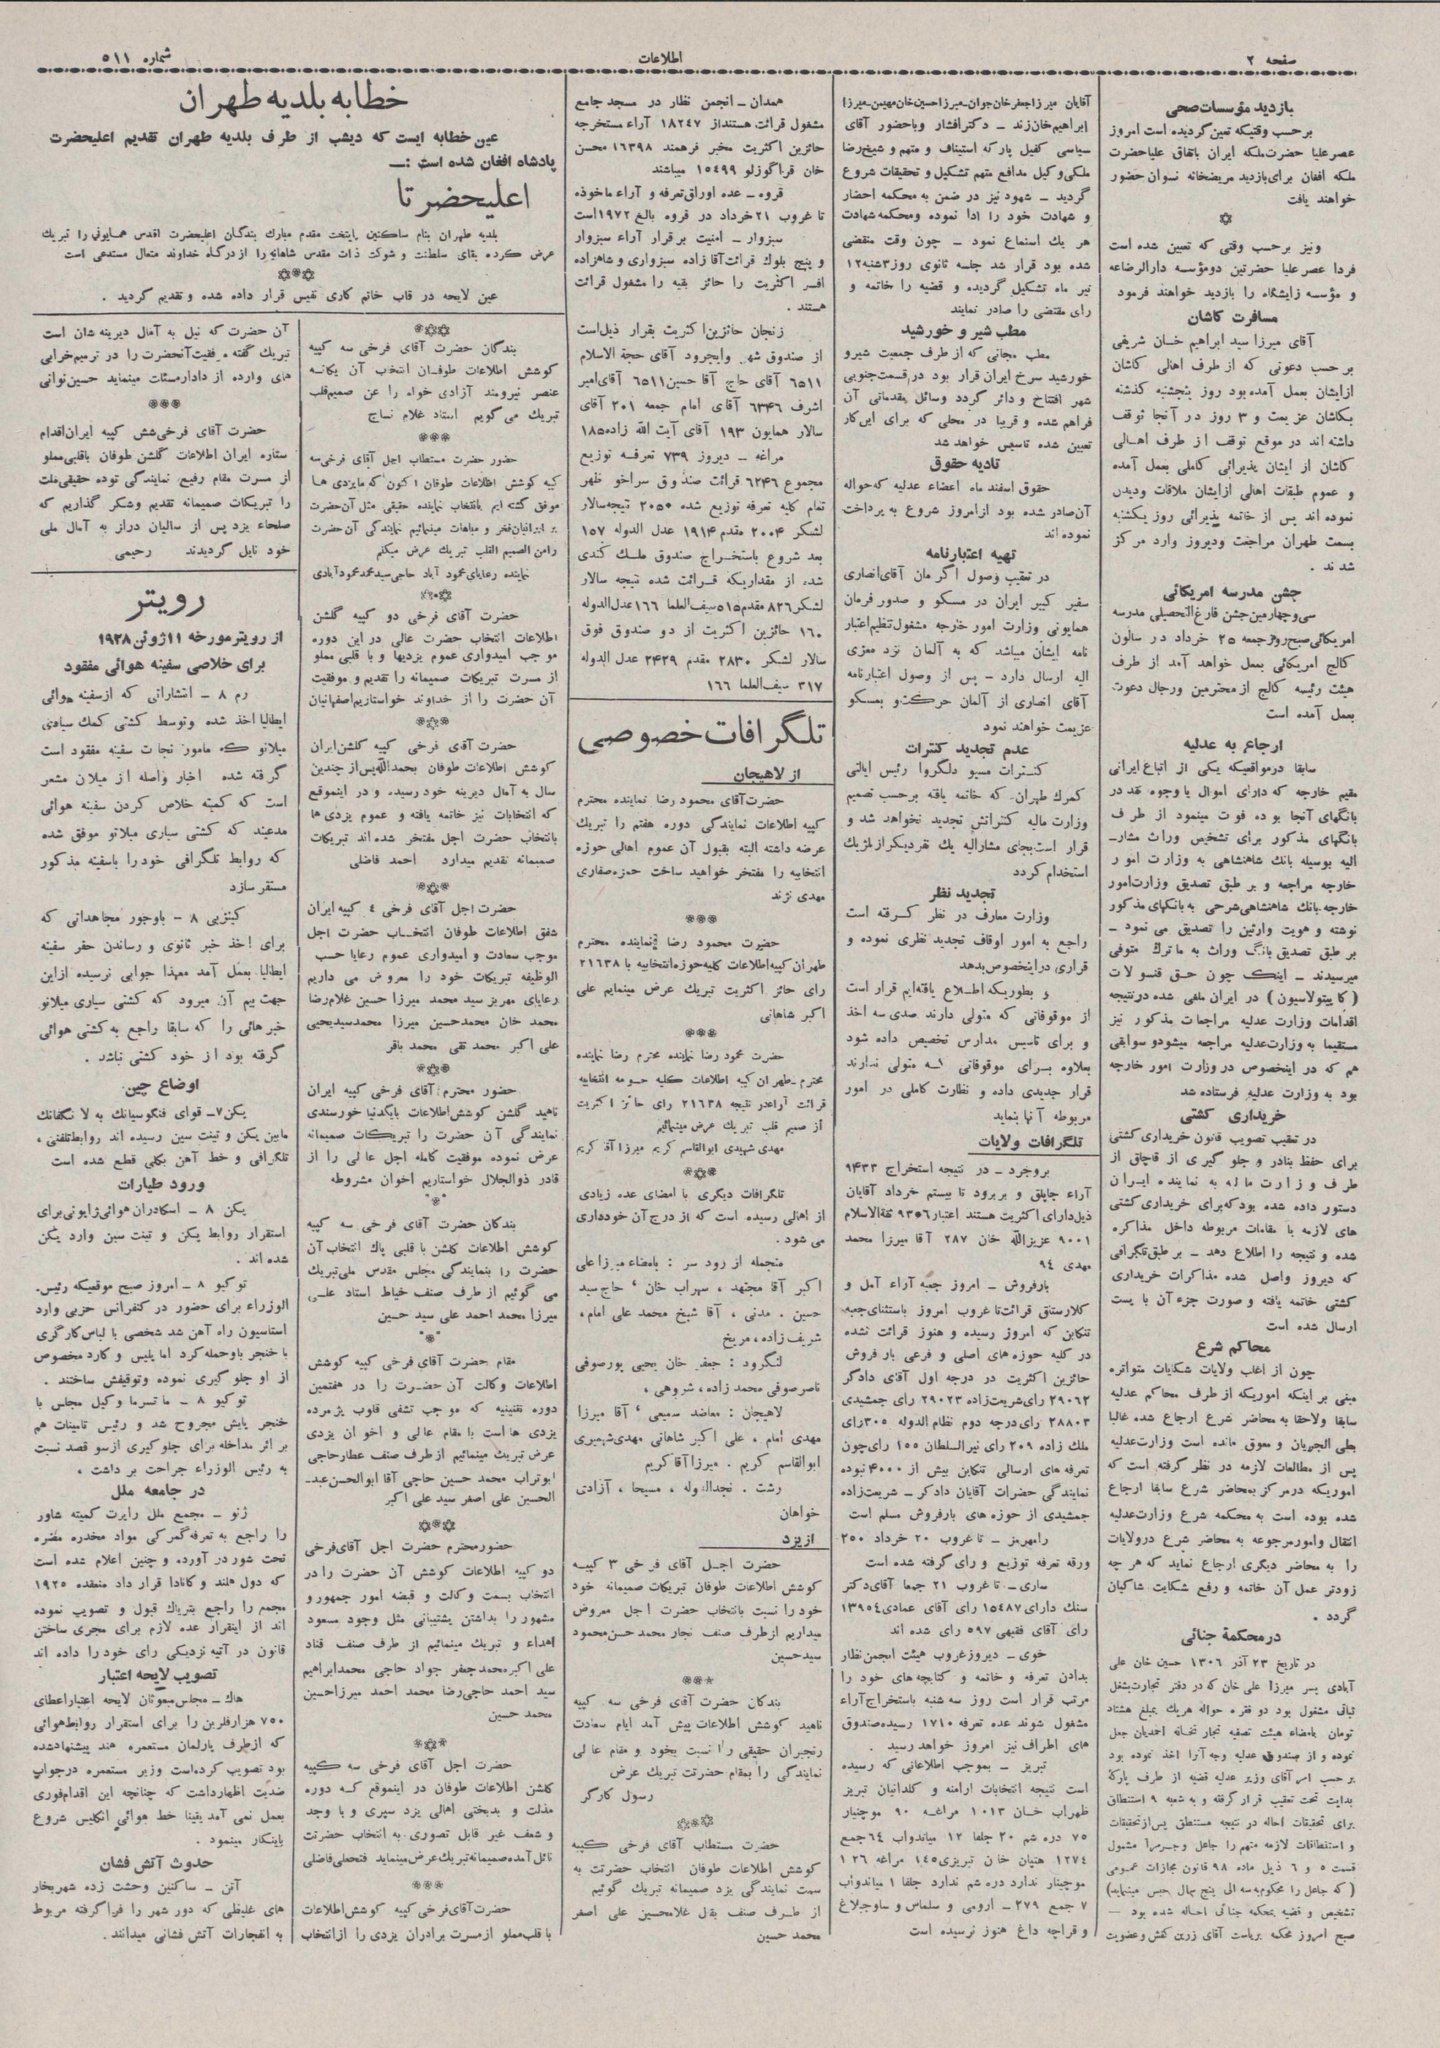 صفحه ۲
اطلاعات
شماره ۵۱۱
بازدید مؤسسات صحی
بر حسب وقتیکه تعیین گردیده است امروز
عصر علیا حضرت ملکه ایران باتفاق علیاحضرت
ملکه افغان برای بازدید مریضخانه نسوان حضور
خواهند یافت
ونیز بر حسب وقتی که تعیین شده است
فردا عصر علیا حضرتین دو مؤسسه دارالرضاعه
و مؤسسه زایشگاه را بازدید خواهند فرمود
مسافرت کاشان
آقای میرزا سید ابراهیم خان شریفی
بر حسب دعوتی که از طرف اهالی کاشان
ازایشان بعمل آمده بود روز پنجشنبه گذشته
بکاشان عزیمت و ۳ روز در آنجا توقف
داشته اند در موقع توقف از طرف اهالی
کاشان از ایشان پذیرائی کاملی بعمل آمده
و عموم طبقات اهالی ازایشان ملاقات ودیدن
نموده اند پس از خاتمه پذیرائی روز یکشنبه
بسمت طهران مراجعت ودیروز وارد مرکز
شدند .
جشن مدرسه امریکائی
سی وچهارمین جشن فارغ التحصیلی مدرسه
امریکائی صبح روز جمعه ۲۵ خرداد در سالون
کالج امریکائی بعمل خواهد آمد از طرف
هیئت رئیسه کالج از محترمین ورجال دعوت
بعمل آمده است
ارجاع به عدلیه
سابقا در مواقعیکه یکی از اتباع ایرانی
مقیم خارجه که دارای اموال یا وجوه نقد در
بانگهای آنجا بوده فوت مینمود از طرف
بانگهای مذکور برای تشخیص وراث مشار-
الیه بوسیله بانك شاهنشاهی به وزارت امور
خارجه مراجعه و بر طبق تصدیق وزارت امور
خارجه بانك شاهنشاهی شرحی به بانگهای مذکور
نوشته و هویت وارثین را تصدیق می نمود -
بر طبق تصدیق بانگ وراث به ماترك متوفی
میرسیدند - اینک چون حق قنسولات
(کاپیتولاسیون) در ایران ملغی شده در نتیجه
اقدامات وزارت عدلیه مراجعات مذکور نیز
مستقیما به وزارت عدلیه مراجعه میشود و سوابقی
هم که در اینخصوص در وزارت امور خارجه
بود به وزارت عدلیه فرستاده شد
خریداری کشتی
در تعقیب تصویب قانون خریداری کشتی
برای حفظ بنادر و جلو گیری از قاچاق از
طرف وزارت مالیه به نماینده ایران
دستور داده شده بود که برای خریداری کشتی
های لازمه با مقامات مربوطه داخل مذاکره
شده و نتیجه را اطلاع دهد - بر طبق تلگرافی
که دیروز واصل شده مذاکرات خریداری
کشتی خاتمه یافته و صورت جزء آن با پست
ارسال شده است
محاکم شرع
چون از اغلب ولایات شکایات متواتره
مبنی بر اینکه اموریکه از طرف محاکم عدلیه
سابقا ولاحقا به محاضر شرع ارجاع شده غالبا
بطی الجریان و معوق مانده است وزارت عدلیه
پس از مطالعات لازمه در نظر گرفته است که
اموریکه در مرکز بمحاضر شرع سابقا ارجاع
شده بوده است به محکمه شرع وزارت عدلیه
انتقال و امور مرجوعه به محاضر شرع در ولایات
را به محاضر دیگری ارجاع نماید که هر چه
زودتر عمل آن خاتمه و رفع شکایت شاکیان
گردد .
در محکمة جنائی
در تاریخ ۲۳ آذر ۱۳۰۶ حسین خان علی
آبادی پسر میرزا علی خان که در دفتر تجارت بشغل
ثباتی مشغول بود دو فقره حواله هریك بمبلغ هشتاد
تومان بامضاء هیئت تصفیه تجار تخانه احمدیان جعل
نموده و از صندوق عدلیه وجه آنرا اخذ نموده بود
بر حسب امر آقای وزیر عدلیه قضیه از طرف پارکه
بدایت تحت تعقیب قرار گرفته و به شعبه ۹ استنطاق
برای تحقیقات احاله در نتیجه مستنطق پس از تحقیقات
و استنطاقات لازمه متهم را جاعل و جرم را مشمول
قسمت ۵ و ۶ ذیل ماده ۹۸ قانون مجازات عمومی
(که جاعل را محکوم به سه الی پنج سال حبس مینماید)
تشخیص و قضیه بمحکمه جنائی احاله شده بود -
صبح امروز محکمه بریاست آقای زرین کفش و عضویت
آقایان میرزا جعفر خان جوان-میرزا حسین خان مهیمن-میرزا
ابراهیم خان زند - دکتر افشار و باحضور آقای
سیاسی کفیل پارکه استیناف و متهم و شیخ رضا
ملکی وکیل مدافع متهم تشکیل و تحقیقات شروع
گردید - شهود نیز در ضمن به محکمه احضار
و شهادت خود را ادا نموده و محکمه شهادت
هر یك استماع نمود - چون وقت منقضی
شده بود قرار شد جلسه ثانوی روز ۳شنبه ۱۲
تیر ماه تشکیل گردیده و قضیه را خاتمه و
رأی مقتضی را صادر نمایند
مطب شیر و خورشید
مطب مجانی که از طرف جمعیت شیرو
خورشید سرخ ایران قرار بود در قسمت جنوبی
شهر افتتاح و دائر گردد وسائل مقدماتی آن
فراهم شده و قریبا در محلی که برای این کار
تعیین شده تاسیس خواهد شد
تادیه حقوق
حقوق اسفند ماه اعضاء عدلیه که حواله
آن صادر شده بود از امروز شروع به پرداخت
نموده اند
تهیه اعتبارنامه
در تعقیب وصول اگر مان آقای انصاری
سفیر کبیر ایران در مسکو و صدور فرمان
همایونی وزارت امور خارجه مشغول تنظیم اعتبار
نامه ایشان میباشد که به آلمان نزد معزی
الیه ارسال دارد - پس از وصول اعتبارنامه
آقای انصاری از آلمان حرکت و بمسکو
عزیمت خواهند نمود
عدم تجدید کنترات
کنترات مسیو دلگروا رئیس ایالتی
کمرك طهران که خاتمه یافته برحسب تصمیم
وزارت مالیه کنتراتش تجدید نخواهد شد و
قرار است بجای مشارالیه یك نفر دیگر از بلژیك
استخدام گردد
تجدید نظر
وزارت معارف در نظر گرفته است
راجع به امور اوقاف تجدید نظری نموده و
قراری در اینخصوص بدهد
و بطوریکه اطلاع یافته ایم قرار است
از موقوفاتی که متولی دارند صدی سه اخذ
و برای تاسیس مدارس تخصیص داده شود
بعلاوه برای موقوفاتی که متولی ندارند
قرار جدیدی داده و نظارت کاملی در امور
مربوطه آنها بنماید
تلگرافات ولایات
بروجرد - در نتیجه استخراج ۹۴۳۳
آراء جاپلق و بربرود تا بیستم خرداد آقایان
ذیل دارای اکثریت هستند اعتبار ۹۳۵۶ ثقة الاسلام
۹۰۰۱ عزیزالله خان ۲۸۷ آقا میرزا محمد
مهدی ۹۴
بارفروش - امروز جعبه آراء آمل و
کلارستاق قرائت تا غروب امروز باستثنای جعبه
تنکابن که امروز رسیده و هنوز قرائت نشده
در کلیه حوزه های اصلی و فرعی بار فروش
حائزین اکثریت در درجه اول آقای دادگر
۲۹۰۶۲ رأی شریعت زاده ۲۹۰۲۳ رأی جمشیدی
۲۸۸۰۳ رأی درجه دوم نظام الدوله ۳۰۵ رای
ملك زاده ۲۰۹ رای نیرالسلطان ۱۵۵ رای چون
تعرفه های ارسالی تنکابن بیش از ۴۰۰۰ نبوده
نمایندگی حضرات آقایان دادگر - شریعت زاده
جمشیدی از حوزه های بارفروش مسلم است
رامهرمز - تا غروب ۲۰ خرداد ۲۵۰
ورقه تعرفه توزیع و رای گرفته شده است
ساری - تا غروب ۲۱ جمعا آقای دکتر
سنك دارای ۱۵۴۸۷ رأی آقای عمادی ۱۳۹۵۴
رأی آقای فقیهی ۵۹۷ رای شده اند
خوی - دیروز غروب هیئت انجمن نظار
بدادن تعرفه و خاتمه و کتابچه های خود را
مرتب قرار است روز سه شنبه باستخراج آراء
مشغول شوند عده تعرفه ۱۷۱۰ رسیده صندوق
های اطراف نیز امروز خواهد رسید .
تبریز - بموجب اطلاعاتی که رسیده
است نتیجه انتخابات ارامنه و کلدانیان تبریز
ظهراب خان ۱۰۱۳ مراغه ۹۰ موچنبار
۷۵ دره شم ۲۰ جلفا ۱۲ میاندواب ۶۴ جمع
۱۲۷۴ هنیان خان تبریزی ۱۴۵ مراغه ۱۲۶
موچنبار ندارد دره شم ندارد جلفا ۱ میاندواب
۷ جمع ۲۷۹ - ارومی و سلماس و ساوجبلاغ
و قراچه داغ هنوز نرسیده است
همدان - انجمن نظار در مسجد جامع
مشغول قرائت هستند از ۱۸۲۴۷ آراء مستخرجه
حائزین اکثریت مخبر فرهمند ۱۶۳۹۸ محسن
خان قراگوزلو ۱۵۴۹۹ میباشند
قروه - عده اوراق تعرفه و آراء ماخوذه
تا غروب ۲۱ خرداد در قروه بالغ ۱۹۷۲ است
سبزوار - امنیت برقرار آراء سبزوار
و پنج بلوك قرائت آقا زاده سبزواری و شاهزاده
افسر اکثریت را حائز بقیه را مشغول قرائت
هستند .
زنجان حائزین اکثریت بقرار ذیل است
از صندوق شهر وایجرود آقای حجة الاسلام
۶۵۱۱ آقای حاج آقا حسین ۶۵۱۱ آقای امیر
اشرف ۶۳۴۶ آقای امام جمعه ۲۰۱ آقای
سالار همایون ۱۹۳ آقای آیت الله زاده ۱۸۵
مراغه - دیروز ۷۳۹ تعرفه توزیع
مجموع ۶۲۴۶ قرائت صندوق سراجو ظهر
تمام کلیه تعرفه توزیع شده ۲۰۵۰ نتیجه سالار
لشکر ۲۰۰۴ مقدم ۱۹۱۴ عدل الدوله ۱۵۷
بعد شروع باستخراج صندوق ملك کندی
شده از مقداریکه قرائت شده نتیجه سالار
لشکر ۸۲۶ مقدم ۵۱۵ سیف العلما ۱۶۶ عدل الدوله
۱۶۰ حائزین اکثریت از دو صندوق فوق
سالار لشکر ۲۸۳۰ مقدم ۲۴۲۹ عدل الدوله
۳۱۷ سیف العلما ۱۶۶
تلگرافات خصوصی
از لاهیجان
حضرت آقای محمود رضا نماینده محترم
کپیه اطلاعات نمایندگی دوره هفتم را تبریك
عرضه داشته البته بقبول آن عموم اهالی حوزه
انتخابیه را مفتخر خواهید ساخت حمزه صفاری
مهدی نژند
حضرت محمود رضا نماینده محترم
طهران کپیه اطلاعات کلیه حوزه انتخابیه با ۲۱۶۳۸
رای حائز اکثریت تبریك عرض مینمایم علی
اکبر شاهانی
حضرت محمود رضا نماینده محترم رضا نماینده
محترم طهران کپیه اطلاعات کلیه حومه انتخابیه
قرائت آراء در نتیجه ۲۱۶۳۸ رای حائز اکثریت
از صمیم قلب تبریك عرض مینمائیم
مهدی شهیدی ابوالقاسم کریم میرزا آقا کریم
تلگرافات دیگری با امضای عده زیادی
از اهالی رسیده است که از درج آن خودداری
می شود .
منجمله از رود سر : بامضاء میرزا علی
اکبر آقا مجتهد ، سهراب خان ، حاج سید
حسین . مدنی ، آقا شیخ محمد علی امام ،
شریف زاده ، مریخ
لنگرود : جعفر خان یحیی پور صوفی
ناصر صوفی محمد زاده ، شروهی ،
لاهیجان : معاضد سمیعی ، آقا میرزا
مهدی امام ، علی اکبر شاهانی مهدی شهمیری
ابوالقاسم کریم . میرزا آقا کریم
رشت . نجدالدوله ، مسیحا ، آزادی
خواهان
از یزد
حضرت اجل آقای فرخی ۳ کپیه
کوشش اطلاعات طوفان تبریکات صمیمانه خود
خود را نسبت بانتخاب حضرت اجل معروض
میداریم از طرف صنف نجار محمد حسن محمود
سید حسین
بندگان حضرت آقای فرخی سه کپیه
ناهید کوشش اطلاعات پیش آمد ایام سعادت
رنجبران حقیقی را نسبت بخود و مقام عالی
نمایندگی را بمقام حضرتت تبریك عرض
رسول کارگر
حضرت مستطاب آقای فرخی کپیه
کوشش اطلاعات طوفان انتخاب حضرتت به
سمت نمایندگی یزد صمیمانه تبریك گوئیم
از طرف صنف بقل غلامحسین علی اصغر
محمد حسین
خطابه بلدیه طهران
عین خطابه ایست که دیشب از طرف بلدیه طهران تقدیم اعلیحضرت
پادشاه افغان شده است :—
اعلیحضرتا
بلدیه طهران بنام ساکنین پایتخت مقدم مبارك بندگان اعلیحضرت اقدس همایونی را تبریك
عرض کرده بقای سلطنت و شوکت ذات مقدس شاهانه را از درگاه خداوند متعال مستدعی است
عین لایحه در قاب خاتم کاری نفیس قرار داده شده و تقدیم گردید .
بندگان حضرت آقای فرخی سه کپیه
کوشش اطلاعات طوفان انتخاب آن یگانه
عنصر نیرومند آزادی خواه را عن صمیم قلب
تبریك می گویم استاد غلام نساج
حضور حضرت مستطاب اجل آقای فرخی سه
کپیه کوشش اطلاعات طوفان اکنون که ما یزدی ها
موفق گشته ایم بانتخاب نماینده حقیقی مثل آن حضرت
بر ایرانیان فخر و مباهات مینمائیم نمایندگی آن حضرت
را من الصمیم القلب تبریك عرض میکنم
نماینده رعایای محمود آباد حاجی سید محمد محمود آبادی
حضرت آقای فرخی دو کپیه گلشن
اطلاعات انتخاب حضرت عالی در این دوره
موجب امیدواری عموم یزدیها و با قلبی مملو
از مسرت تبریکات صمیمانه را تقدیم و موفقیت
آن حضرت را از خداوند خواستاریم اصفهانیان
حضرت آقای فرخی کپیه گلشن ایران
کوشش اطلاعات طوفان بحمدالله پس از چندین
سال به آمال دیرینه خود رسیده و در اینموقع
که انتخابات نیز خاتمه یافته و عموم یزدی ها
بانتخاب حضرت اجل مفتخر شده اند تبریکات
صمیمانه تقدیم میدارد احمد فاضلی
حضرت اجل آقای فرخی ٤ کپیه ایران
شفق اطلاعات طوفان انتخاب حضرت اجل
موجب سعادت و امیدواری عموم رعایا حسب
الوظیفه تبریکات خود را معروض می داریم
رعایای مهریز سید محمد میرزا حسین غلام رضا
محمد خان محمد حسین میرزا محمد سید یحیی
علی اکبر محمد تقی محمد باقر
حضور محترم آقای فرخی کپیه ایران
ناهید گلشن کوشش اطلاعات بایکدنیا خورسندی
نمایندگی آن حضرت را تبریکات صمیمانه
عرض نموده موفقیت کامله اجل عالی را از
قادر ذوالجلال خواستاریم اخوان مشروطه
بندگان حضرت آقای فرخی سه کپیه
کوشش اطلاعات گلشن با قلبی پاك انتخاب آن
حضرت را بنمایندگی مجلس مقدس ملی تبریك
می گوئیم از طرف صنف خیاط استاد علی
میرزا محمد احمد علی سید حسین
مقام حضرت آقای فرخی کپیه کوشش
اطلاعات وکالت آن حضرت را در هفتمین
دوره تقنینیه که موجب تشفی قلوب پژمرده
یزدی ها است با مقام عالی و اخوان یزدی
عرض تبریك مینمائیم از طرف صنف عطار حاجی
ابوتراب محمد حسین حاجی آقا ابوالحسن عبد-
الحسین علی اصغر سید علی اکبر
حضور محترم حضرت اجل آقای فرخی
دو کپیه اطلاعات کوشش آن حضرت را در
انتخاب بسمت وکالت و قبضه امور جمهور و
مشهور را بداشتن پشتیبانی مثل وجود مسعود
اهداء و تبریك مینمائیم از طرف صنف قناد
علی اکبر محمد جعفر جواد حاجی محمد ابراهیم
سید احمد حاجی رضا محمد احمد میرزا حسین
محمد حسین
حضرت اجل آقای فرخی سه کپیه
گلشن اطلاعات طوفان در اینموقع که دوره
مذلت و بدبختی اهالی یزد سپری و با وجد
و شعف غیر قابل تصوری به انتخاب حضرتت
نائل آمده صمیمانه تبریك عرض مینماید فتحعلی فاضلی
حضرت آقای فرخی کپیه کوشش اطلاعات
با قلب مملو از مسرت برادران یزدی را از انتخاب
آن حضرت که نیل به آمال دیرینه شان است
تبریك گفته موفقیت آنحضرت را در ترمیم خرابی
های وارده از دادار مسئلت مینماید حسین نوائی
حضرت آقای فرخی شش کپیه ایران اقدام
ستاره ایران اطلاعات گلشن طوفان باقلبی مملو
از مسرت مقام رفیع نمایندگی توده حقیقی ملت
را تبریکات صمیمانه تقدیم وشکر گذاریم که
صلحاء یزد پس از سالیان دراز به آمال ملی
خود نایل گردیدند رحیمی
رویتر
از رویتر مورخه ۱۱ ژوئن ۱۹۲۸
برای خلاصی سفینه هوائی مفقود
رم ۸ - انتشاراتی که از سفینه هوائی
ایطالیا اخذ شده و توسط کشتی کمك سیادی
میلانو که مامور نجات سفینه مفقود است
گرفته شده اخبار واصله از میلان مشعر
است که کمیته خلاص کردن سفینه هوائی
مدعیند که کشتی سیاری میلانو موفق شده
که روابط تلگرافی خود را با سفینه مذکور
مستقر سازد
کینزبی ۸ - باوجود مجاهداتی که
برای اخذ خبر ثانوی و رساندن حفر سفینه
ایطالیا بعمل آمد معهذا جوابی نرسیده از این
جهت بیم آن میرود که کشتی سیاری میلانو
خبر هائی را که سابقا راجع به کشتی هوائی
گرفته بود از خود کشتی نباشد .
اوضاع چین
پکن ۷- قوای فنگوسیانك به لانگفانك
مابین پکن و تینت سین رسیده اند روابط تلفنی ،
تلگرافی و خط آهن بکلی قطع شده است
ورود طیارات
پکن ۸ - اسکادران هوائی ژاپونی برای
استقرار روابط پکن و تینت سین وارد پکن
شده اند .
توکیو ۸ - امروز صبح موقعیکه رئیس-
الوزراء برای حضور در کنفرانس حزبی وارد
استاسیون راه آهن شد شخصی با لباس کارگری
با خنجر باو حمله کرد اما پلیس و کارد مخصوص
از او جلو گیری نموده وتوقیفش ساختند .
توکیو ۸ - ماتسرما وکیل مجلس با
خنجر پایش مجروح شد و رئیس تامینات هم
بر اثر مداخله برای جلوگیری از سو قصد نسبت
به رئیس الوزراء جراحت بر داشت .
در جامعه ملل
ژنو - مجمع ملل راپرت کمیته شاور
را راجع به تعرفه گمرکی مواد مخدره مضره
تحت شور در آورده و چنین اعلام شده است
که دول هلند و کانادا قرار داد منعقده ۱۹۲۵
مجمع را راجع بتریاك قبول و تصویب نموده
اند از اینقرار عده لازم برای مجری ساختن
قانون در آتیه نزدیکی رای خود را داده اند
تصویب لایحه اعتبار
هاك - مجلس مبعوثان لایحه اعتبار اعطای
۷۵۰ هزار فلرین را برای استقرار روابط هوائی
که از طرف پارلمان مستعمره هند پیشنهاد شده
بود تصویب کرده است وزیر مستعمره در جواب
ضدیت اظهار داشت که چنانچه این اقدام فوری
بعمل نمی آمد یقینا خط هوائی انگلیس شروع
باینکار مینمود .
حدوث آتش فشان
آتن - ساکنین وحشت زده شهر بخار
های غلیظی که دور شهر را فرا گرفته مربوط
به انفجارات آتش فشانی میدانند .